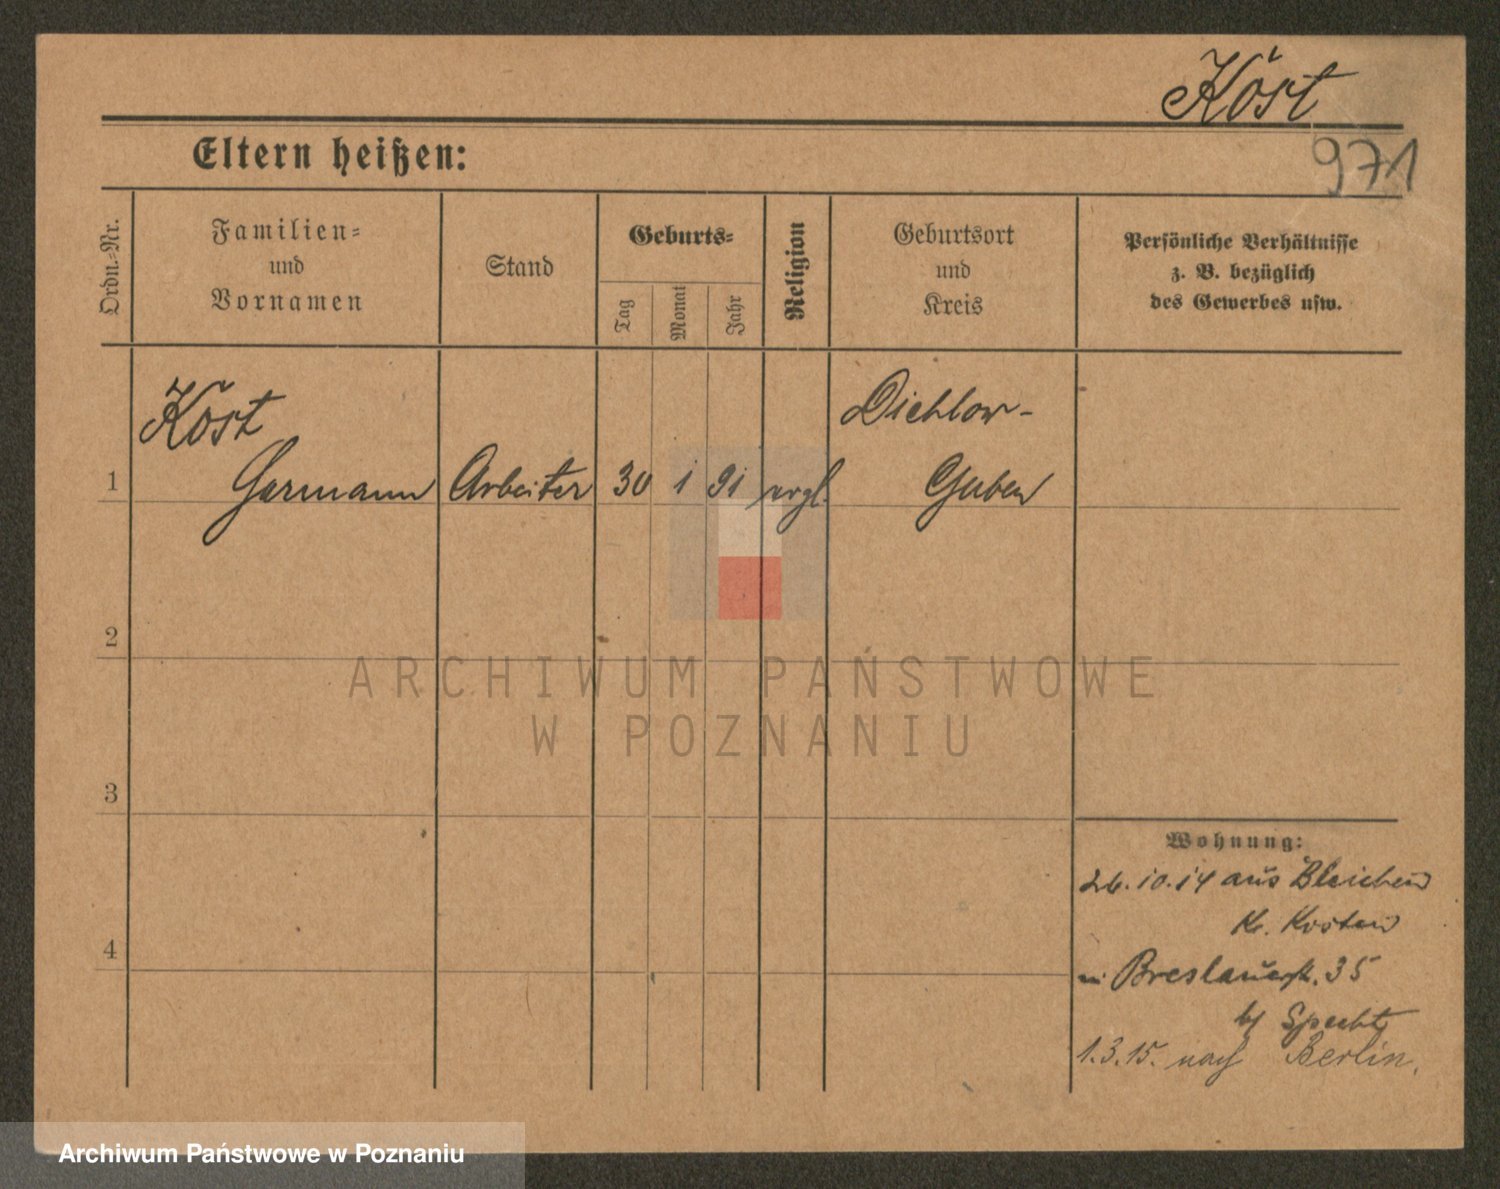 Köst
971
Eltern heißen:
Ordn.-Nr.
Familien-
und
Vornamen
Stand
Geburts-
Tag
Monat
Jahr
Religion
Geburtsort
und
Kreis
Persönliche Verhältnisse
z. B. bezüglich
des Gewerbes usw.
Köst
Dichlow-
1
Hermann Arbeiter 30 1 91 evgl. Guben
2
3
4
Wohnung:
26.10.14 aus Bleichen
Kr. Kosten
in Breslauerstr. 35
b/ Specht
1.3.15. nach Berlin.
ARCHIWUM PAŃSTWOWE
W POZNANIU
Archiwum Państwowe w Poznaniu